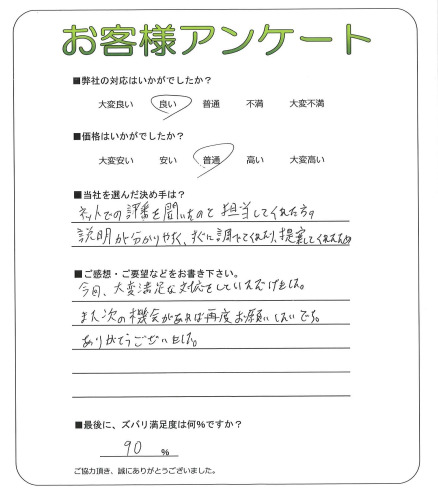 お客様アンケート
■弊社の対応はいかがでしたか?
大変良い 良い 普通 不満 大変不満
■価格はいかがでしたか?
大変安い 安い 普通 高い 大変高い
■当社を選んだ決め手は?
ネットでの評番を聞いたのと担当してくれた方の
説明が分かりやすく、すぐに調下てくれたり、提案してくれたため
■ご感想・ご要望などをお書き下さい。
今回、大変満足な対応をしていただけました。
また次の機会があれば再度お願いしたいです。
ありがとうございました。
■最後に、ズバリ満足度は何%ですか?
90 %
ご協力頂き、誠にありがとうございました。